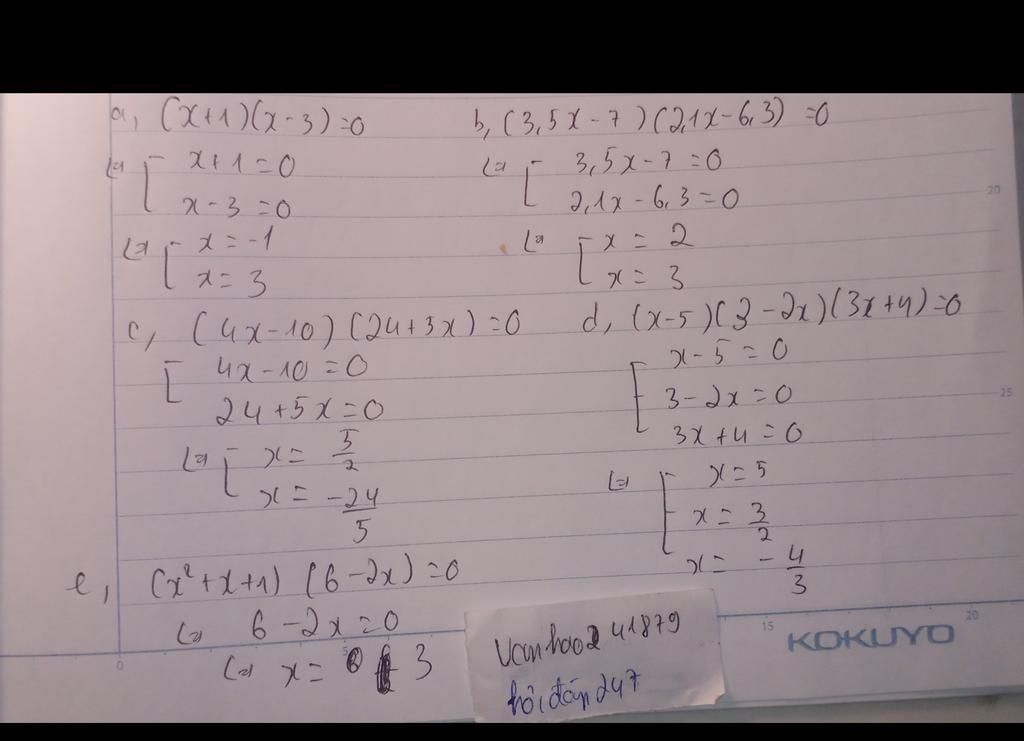 a, (x+1)(x-3)=0
x+1=0
x-3=0
x=-1
x=3
b, (3,5x-7)(2,1x-6,3)=0
3,5x-7=0
2,1x-6,3=0
x=2
x=3
c, (4x-10)(24+3x)=0
4x-10=0
24+5x=0
x=5/2
x=-24/5
d, (x-5)(3-2x)(3x+4)=0
x-5=0
3-2x=0
3x+4=0
x=5
x=3/2
x=-4/3
e, (x²+x+1)(6-2x)=0
⇔ 6-2x=0
⇔ x= 3
Vanhao241879
hỏi đáp 247
KOKUYO
0
5
15
20
20
25